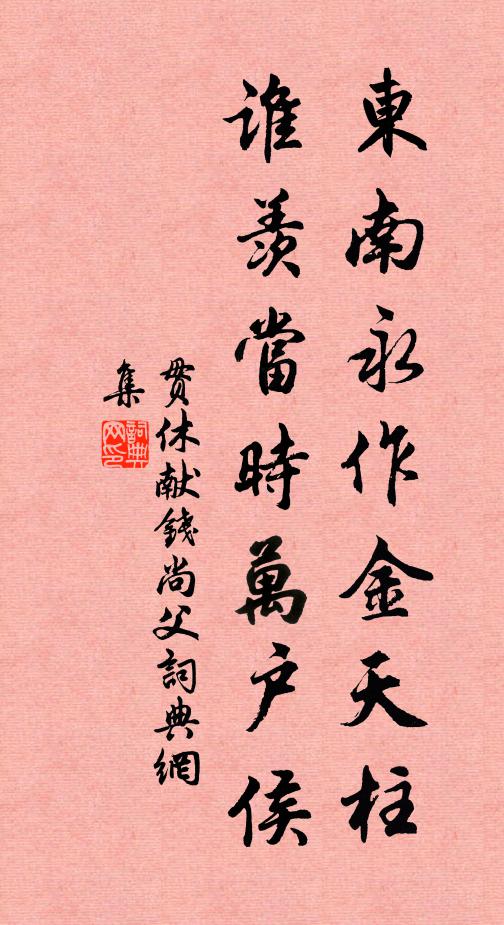 東南永作金天柱
誰羨當時萬户侯
貫休献錢尚父詞典網
集
詞典
网印